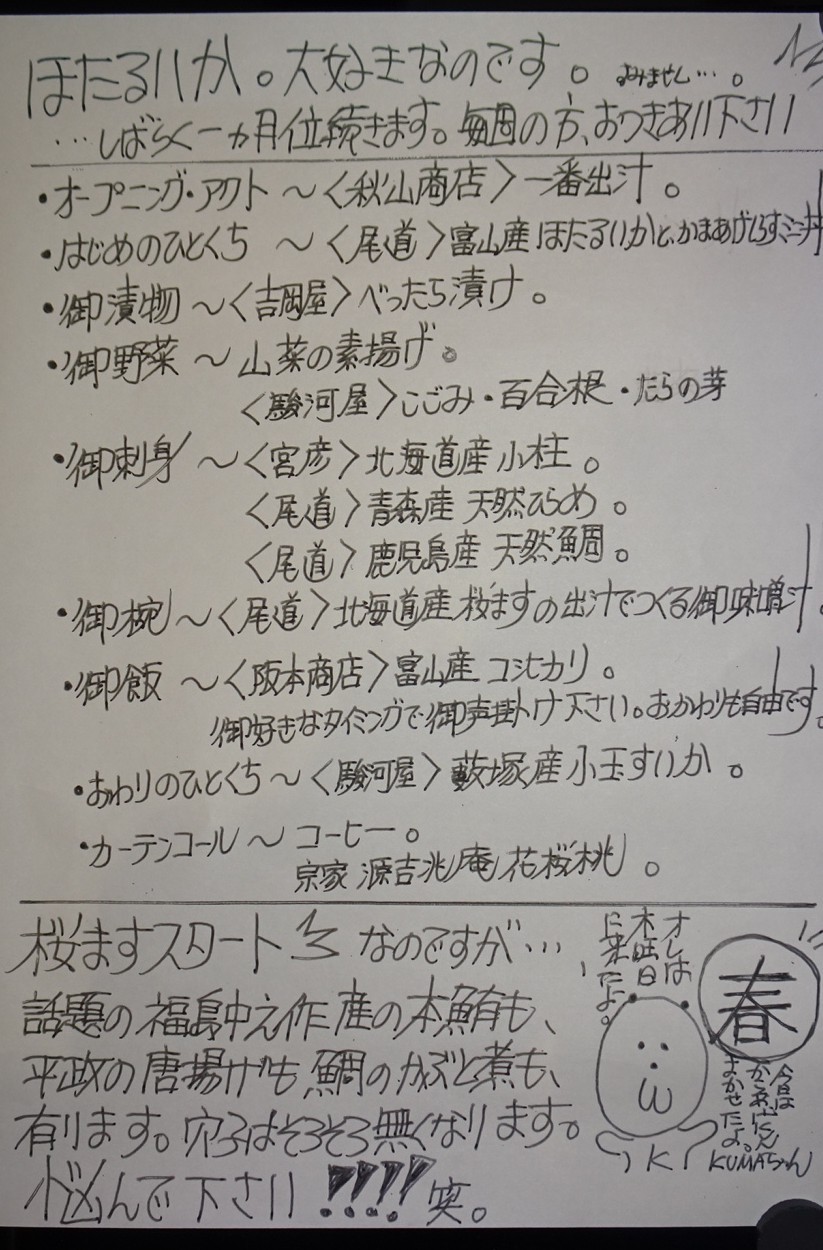 ほたるいか。大好きなのです。すみません…。
…しばらく一ヵ月位続きます。毎週の方、おつきあい下さい
・オープニング・アクト 〜〈秋山商店〉一番出汁。
・はじめのひとくち 〜〈尾道〉富山産ほたるいかと、かまあげしらすミニ丼
・御漬物〜〈吉岡屋〉べったら漬け。
・御野菜〜山菜の素揚げ。
〈駿河屋〉こごみ・百合根・たらの芽
・御刺身〜〈宮彦〉北海道産小柱。
〈尾道〉青森産 天然ひらめ。
〈尾道〉鹿児島産 天然鯛。
・御椀〜〈尾道〉北海道産桜ますの出汁でつくる御味噌汁。
・御飯〜〈阪本商店〉富山産 コシヒカリ。
御好きなタイミングで御声掛け下さい。おかわりも自由です。
・おわりのひとくち〜〈駿河屋〉藪塚産小玉すいか。
・カーテンコール〜コーヒー。
宗家 源吉兆庵 花桜桃。
桜ますスタート なのですが…、
話題の福島中之作産の本鮪も、
平政の唐揚げも、鯛のかぶと煮も、
有ります。穴子はそろそろ無くなります。
悩んで下さい!!!!笑。
オレは
木曜日
に来たよ。
春
今日は
まかせたよ。
KUMAちゃん